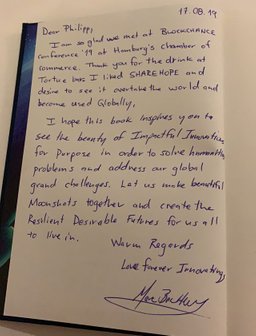 17.08.19
Dear Philipp,
I am so glad we met at BLOCKCHANCE
conference '19 at Hamburg's chamber of
commerce. Thank you for the drink at
Tortue bar. I liked SHAREHOPE and
desire to see it overtake the world and
become used Globally,
I hope this book inspires you to
see the beauty of Impactful Innovation
for Purpose in order to solve humanities
problems and address our global
grand challenges. Let us make beautiful
Moonshots together and create the
Resilient Desirable Futures for us all
to live in.
Warm Regards
Love forever Innovating,